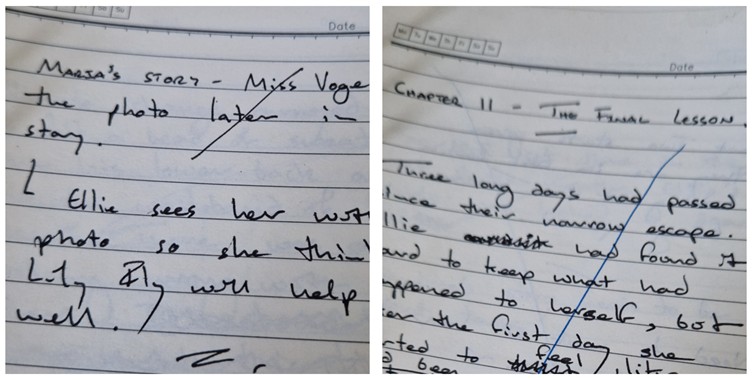 Date
MARIA'S STORY - Miss Voge
the photo later in
story.
Ellie sees her with
photo so she thin
Lily Fly will help
well.
Date
CHAPTER 11 - THE FINAL LESSON.
Three long days had passed
ince their narrow escape.
llie had found it
ard to keep what had
appened to herself, but
er the first day she
rted to feel
d been